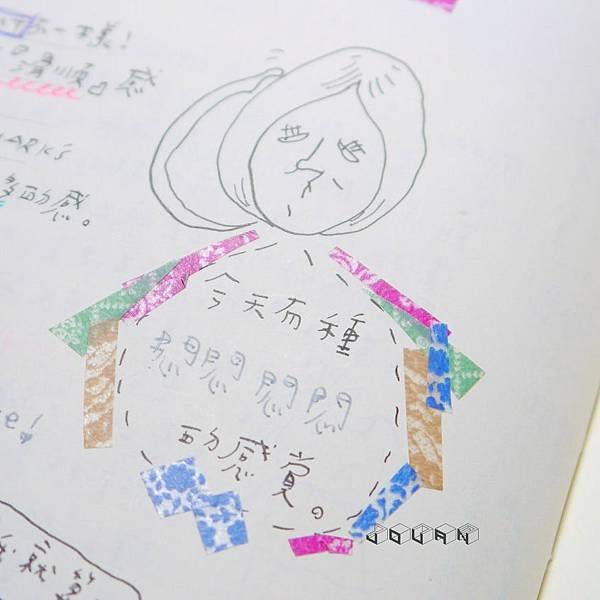 一樣!
滑順」感
ARK's
多的感。
今天有種
悶悶悶悶
的感覺。
e!
就算
JOUAN